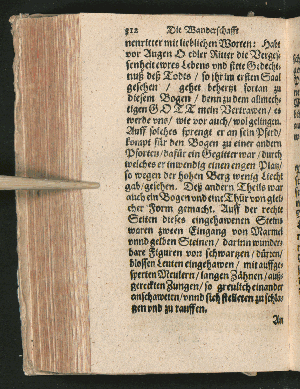 312 Die Wanderschafft
nenritter mit lieblichen Worten: Habt
vor Augen O edler Ritter die Verges-
senheit ewres Lebens vnd stete Gedecht-
nuß deß Todts / so jhr im ersten Saal
gesehen / gehet behertzt fortan zu
diesem Bogen / denn zu dem allmech-
tigen GOTT mein Vertrawen / es
werde vns / wie vor auch / wol gelingen.
Auff solches sprengt er an sein Pferd /
kompt für den Bogen zu einer andern
Pforten / dafür ein Gegitter war / durch
welches er inwendig einen engen Platz /
so wegen der hohen Berg wenig Liecht
gab / gesehen. Deß andern Theils war
auch ein Bogen vnd eine Thür von glei-
cher Form gemacht. Auff der recht
Seiten dieses eingehawenen Steins
waren zween Eingang von Marmel
vnnd gelben Steinen / darinn wunder-
bare Figuren von schwartzen / dürren /
blossen Leuten eingehawen / mit auffge-
sperten Meulern / langen Zähnen / auß-
gereckten Zungen / so greulich einander
anschaweten / vnnd sich stelleten zu schla-
gen vnd zu rauffen.
An